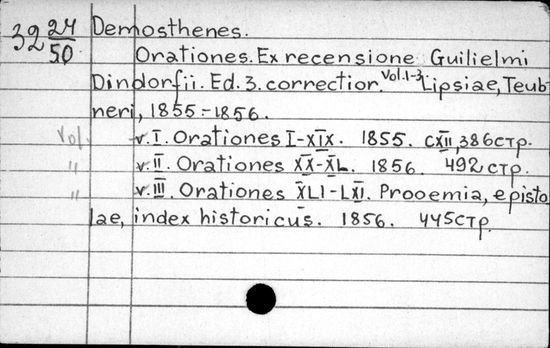 32 24/50 Demosthenes.
Orationes. Ex recensione Guilielmi
Dindorfii. Ed. 3. correctior. Vol. 1-3 Lipsiae, Teub-
neri, 1855-1856.
Vol. v. I. Orationes I-XIX. 1855. CXII, 386 стр.
" v. II. Orationes XX-XL. 1856. 492 стр.
" v. III. Orationes XLI-LXI. Prooemia, episto
lae, index historicus. 1856. 445 стр.